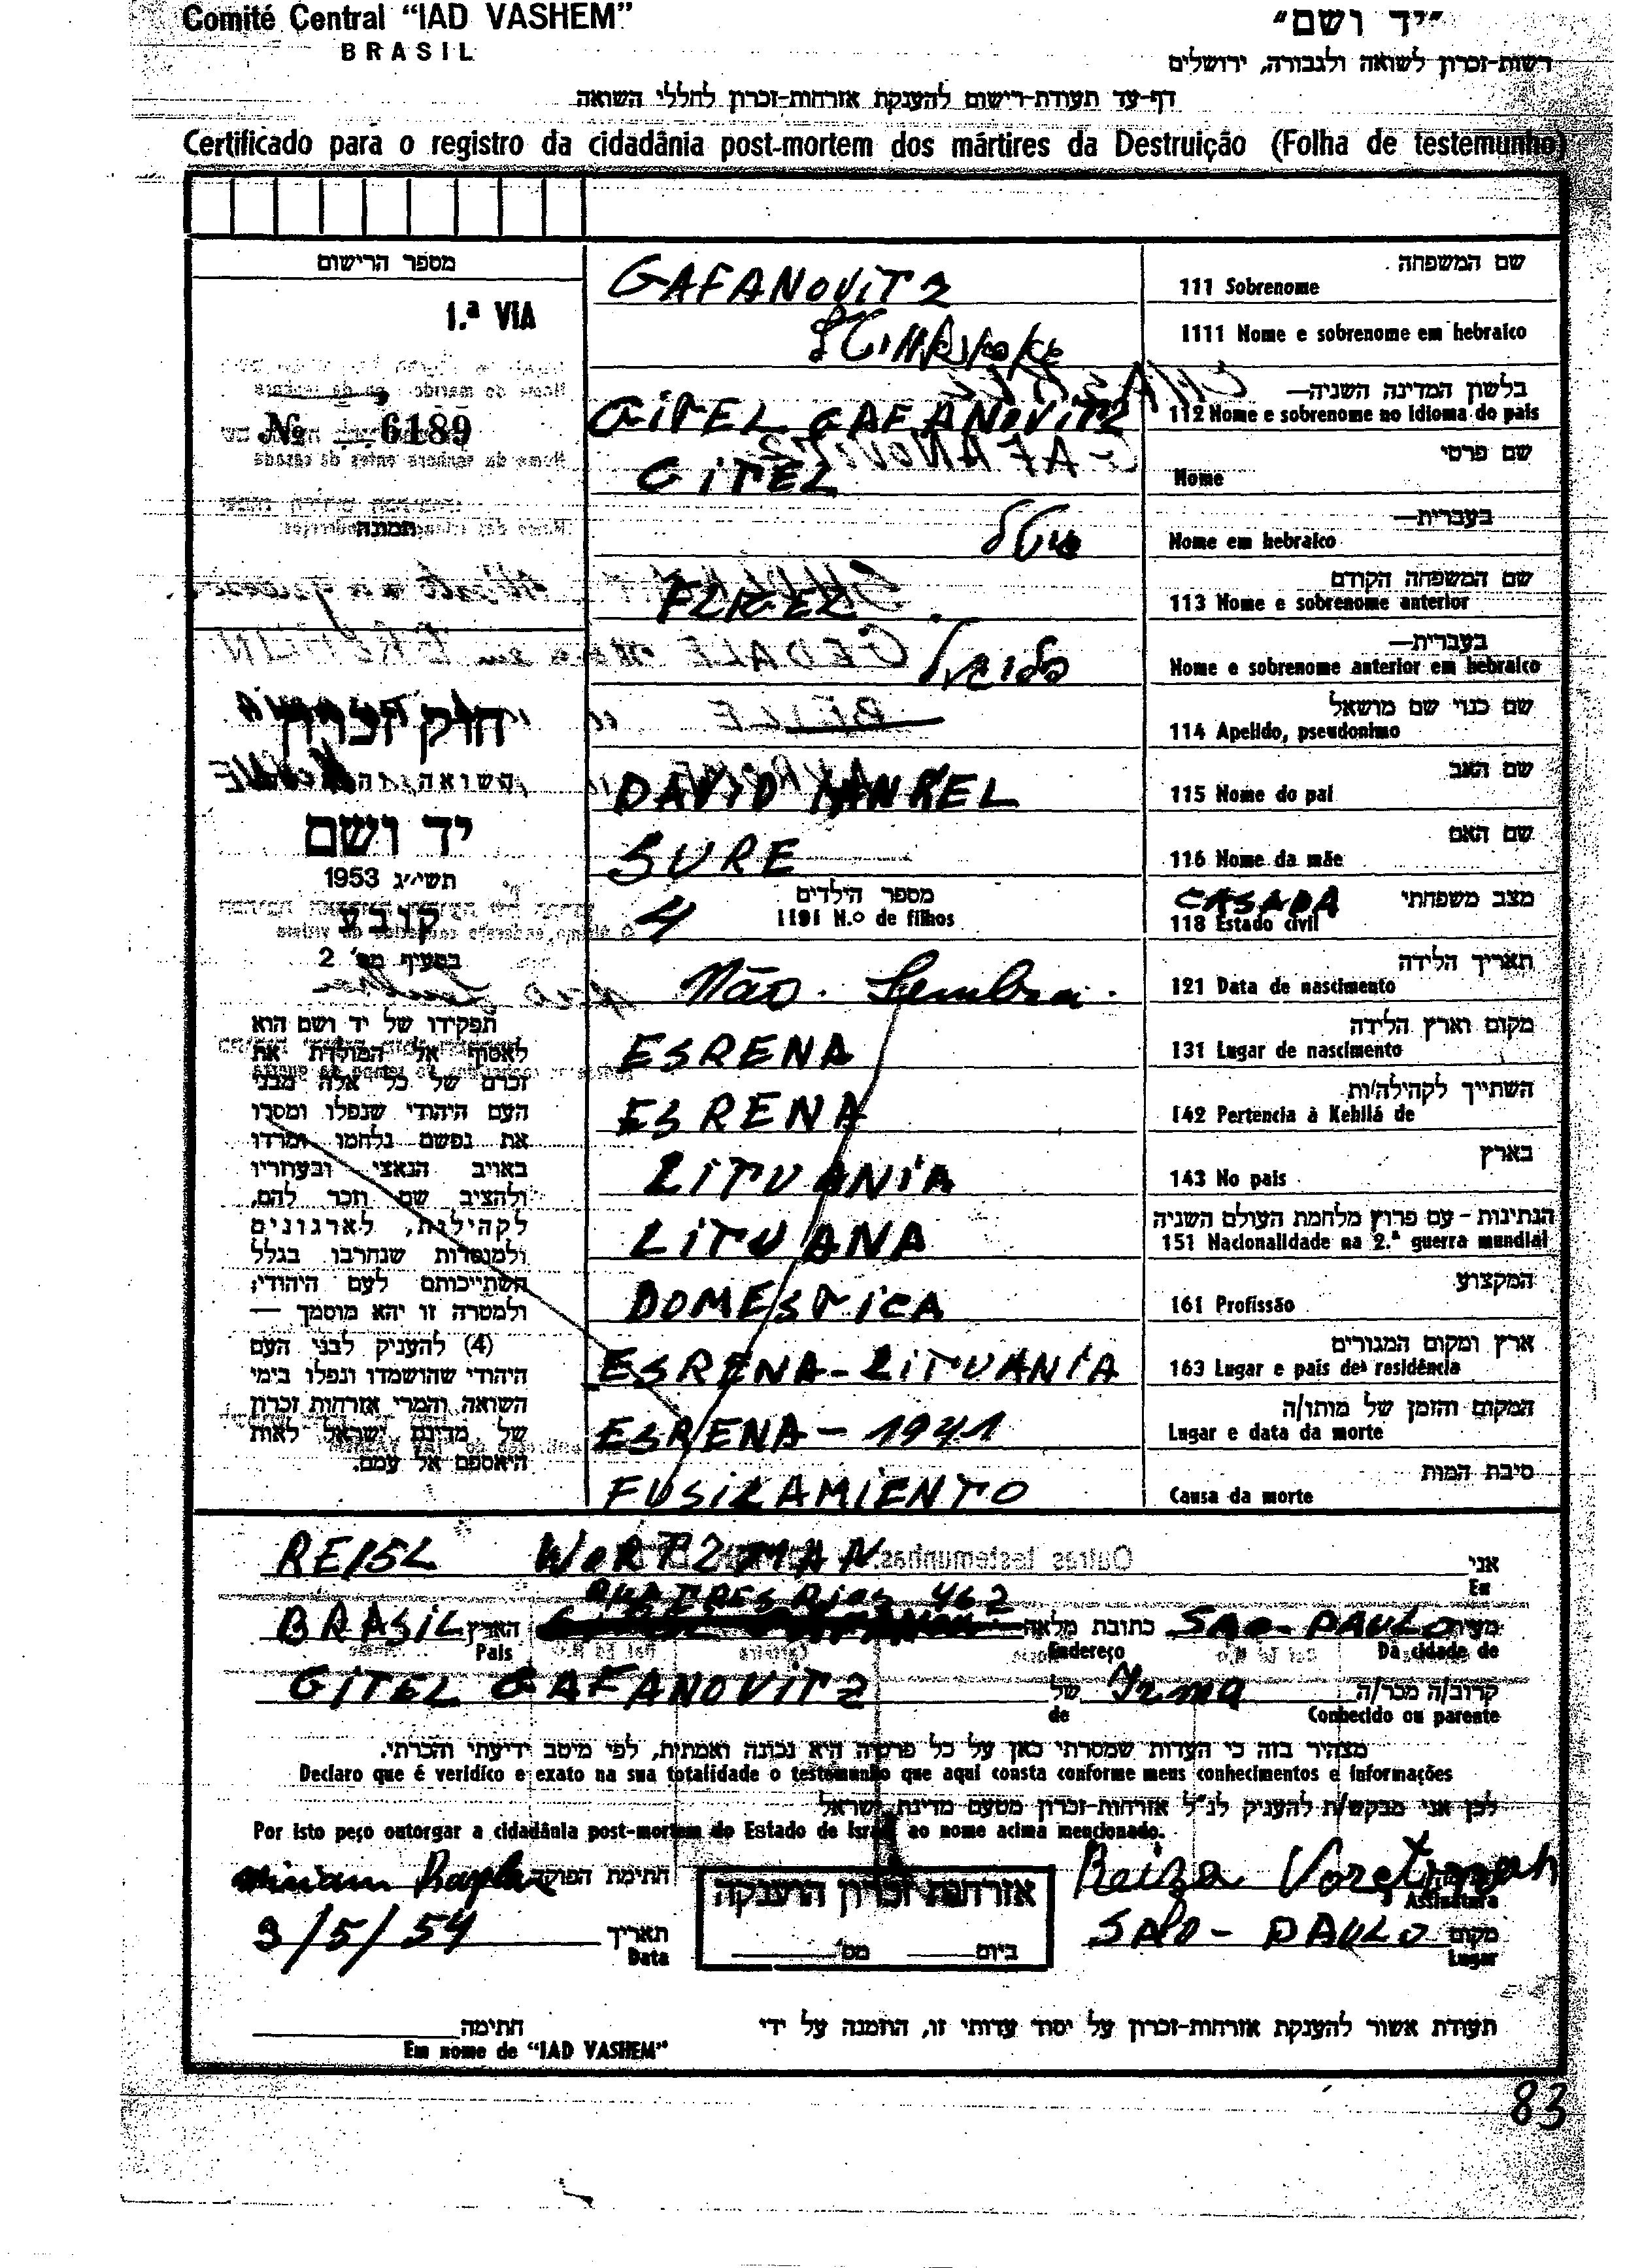 Comité Central "IAD VASHEM"
BRASIL
"יד ושם"
רשות-זכרון לשואה ולגבורה, ירושלים
דף-עד תעודת-רישום להענקת אזרחות-זכרון לחללי השואה
Certificado para o registro da cidadânia post-mortem dos mártires da Destruição (Folha de testemunho)
מספר הרישום
1.ª VIA
No 6189
תמונה
חוק זכרון
יד ושם
תשי"ג 1953
קובע
בסעיף מס' 2
תפקידו של יד ושם הוא
לאסוף אל המולדת את
זכרם של כל אלה מבני
העם היהודי שנפלו ומסרו
את נפשם נלחמו ומרדו
באויב הנאצי ובעוזריו
ולהציב שם וזכר להם,
לקהילות, לארגונים
ולמוסדות שנחרבו בגלל
השתייכותם לעם היהודי;
ולמטרה זו יהא מוסמך —
(4) להעניק לבני העם
היהודי שהושמדו ונפלו בימי
השואה והמרי אזרחות זכרון
של מדינת ישראל לאות
היאספם אל עמם.
שם המשפחה
111 Sobrenome GAFANOVITZ
1111 Nome e sobrenome em hebraico
בלשון המדינה השניה—
112 Nome e sobrenome no idioma do pais GITEL GAFANOVITZ
שם פרטי
Nome GITEL
בעברית—
Nome em hebraico גיטל
שם המשפחה הקודם
113 Nome e sobrenome anterior
בעברית—
Nome e sobrenome anterior em hebraico
שם כנוי שם מושאל
114 Apelido, pseudonimo
שם האב
115 Nome do pai DAVID IANKEL
שם האם
116 Nome da mãe SURE
מצב משפחתי
118 Estado civil CASADA
מספר הילדים
1191 N.º de filhos 4
תאריך הלידה
121 Data de nascimento Não Lembra.
מקום וארץ הלידה
131 Lugar de nascimento ESRENA
השתייך לקהילה/ות
142 Pertencia à Kehilá de ESRENA
בארץ
143 No pais LITUANIA
הנתינות - עם פרוץ מלחמת העולם השניה
151 Nacionalidade na 2.ª guerra mundial LITUANA
המקצוע
161 Profissão DOMESTICA
ארץ ומקום המגורים
163 Lugar e pais de residência ESRENA-LITUANIA
המקום והזמן של מותו/ה
Lugar e data da morte ESRENA-1941
סיבת המות
Causa da morte FUSILAMIENTO
אני
Eu REISL WORTZMAN
RUA TRES Rios 462
מעיר SAO-PAULO כתובת מלאה הארץ BRASIL
Da cidade de Endereço Pais
קרוב/ה מכר/ה Irma של GITEL GAFANOVITZ
Conhecido ou parente de
מצהיר בזה כי העדות שמסרתי כאן על כל פרטיה היא נכונה ואמתית, לפי מיטב ידיעתי והכרתי.
Declaro que é verídico e exato na sua totalidade o testemunho que aqui consta conforme meus conhecimentos e informações
לכן אני מבקש/ת להעניק לנ"ל אזרחות-זכרון מטעם מדינת ישראל
Por isto peço outorgar a cidadânia post-mortem do Estado de Israel ao nome acima mencionado.
Reiza Voretzman
Assinatura
אזרחות זכרון הוענקה
ביום מס'
חתימת הפוקד Miriam
מקום SAO-PAULO
Lugar
תאריך 3/5/54
Data
תעודת אשור להענקת אזרחות-זכרון על יסוד עדותי זו, הוזמנה על ידי
חתימה
Em nome de "IAD VASHEM"
83